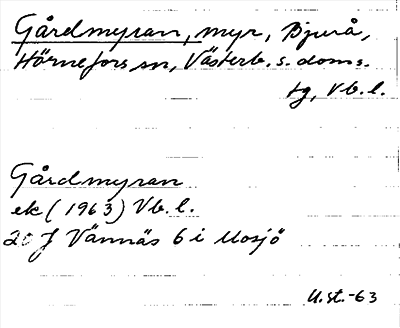 Gårdmyran, myr, Bjurå,
Hörnefors sn, Västerb. s. doms.
tg, Vb. l.
Gårdmyran
ek (1963) Vb. l.
20 J Vännäs 6 i Mosjö
U.st.-63